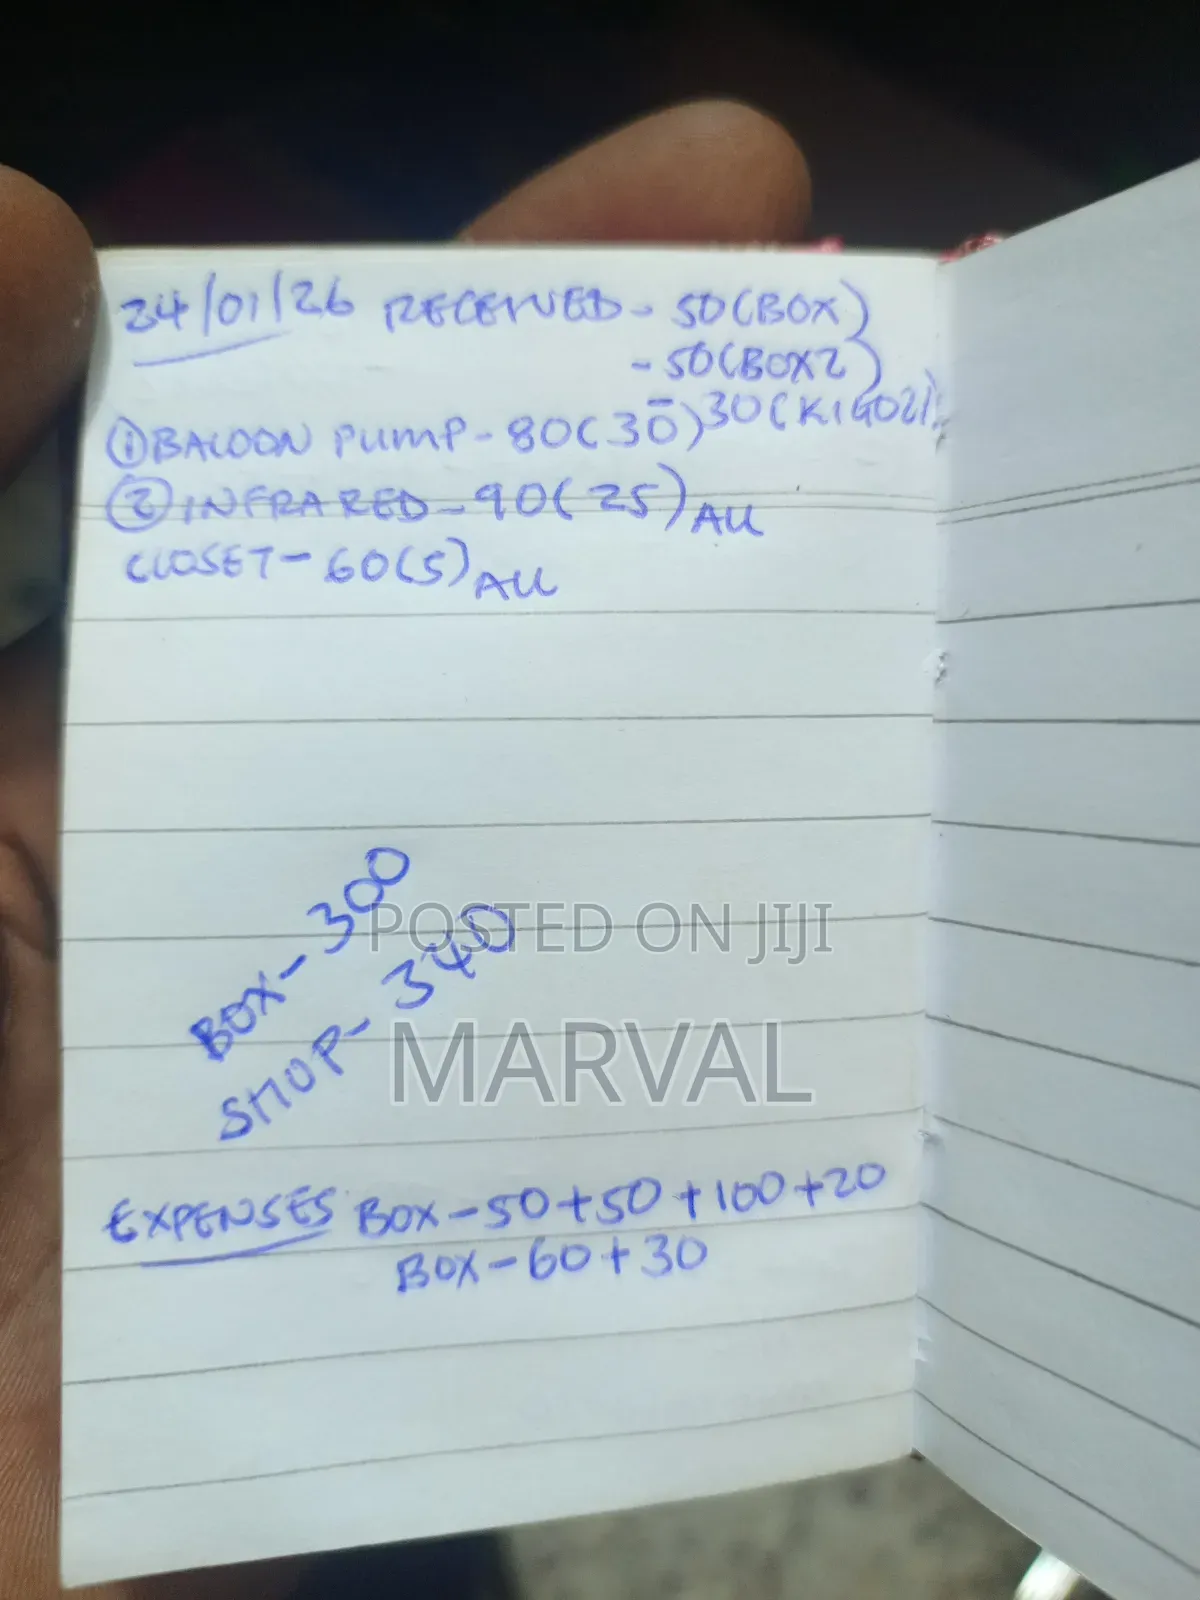 24/01/26 RECEIVED - 50(BOX)
- 50(BOX2)
① BALOON PUMP - 80(30) 30(KIGOZI)
② INFRARED - 90(25) ALL
CLOSET - 60(5) ALL
BOX - 300
SHOP - 340
POSTED ON JIJI
MARVAL
EXPENSES BOX - 50+50+100+20
BOX - 60+30